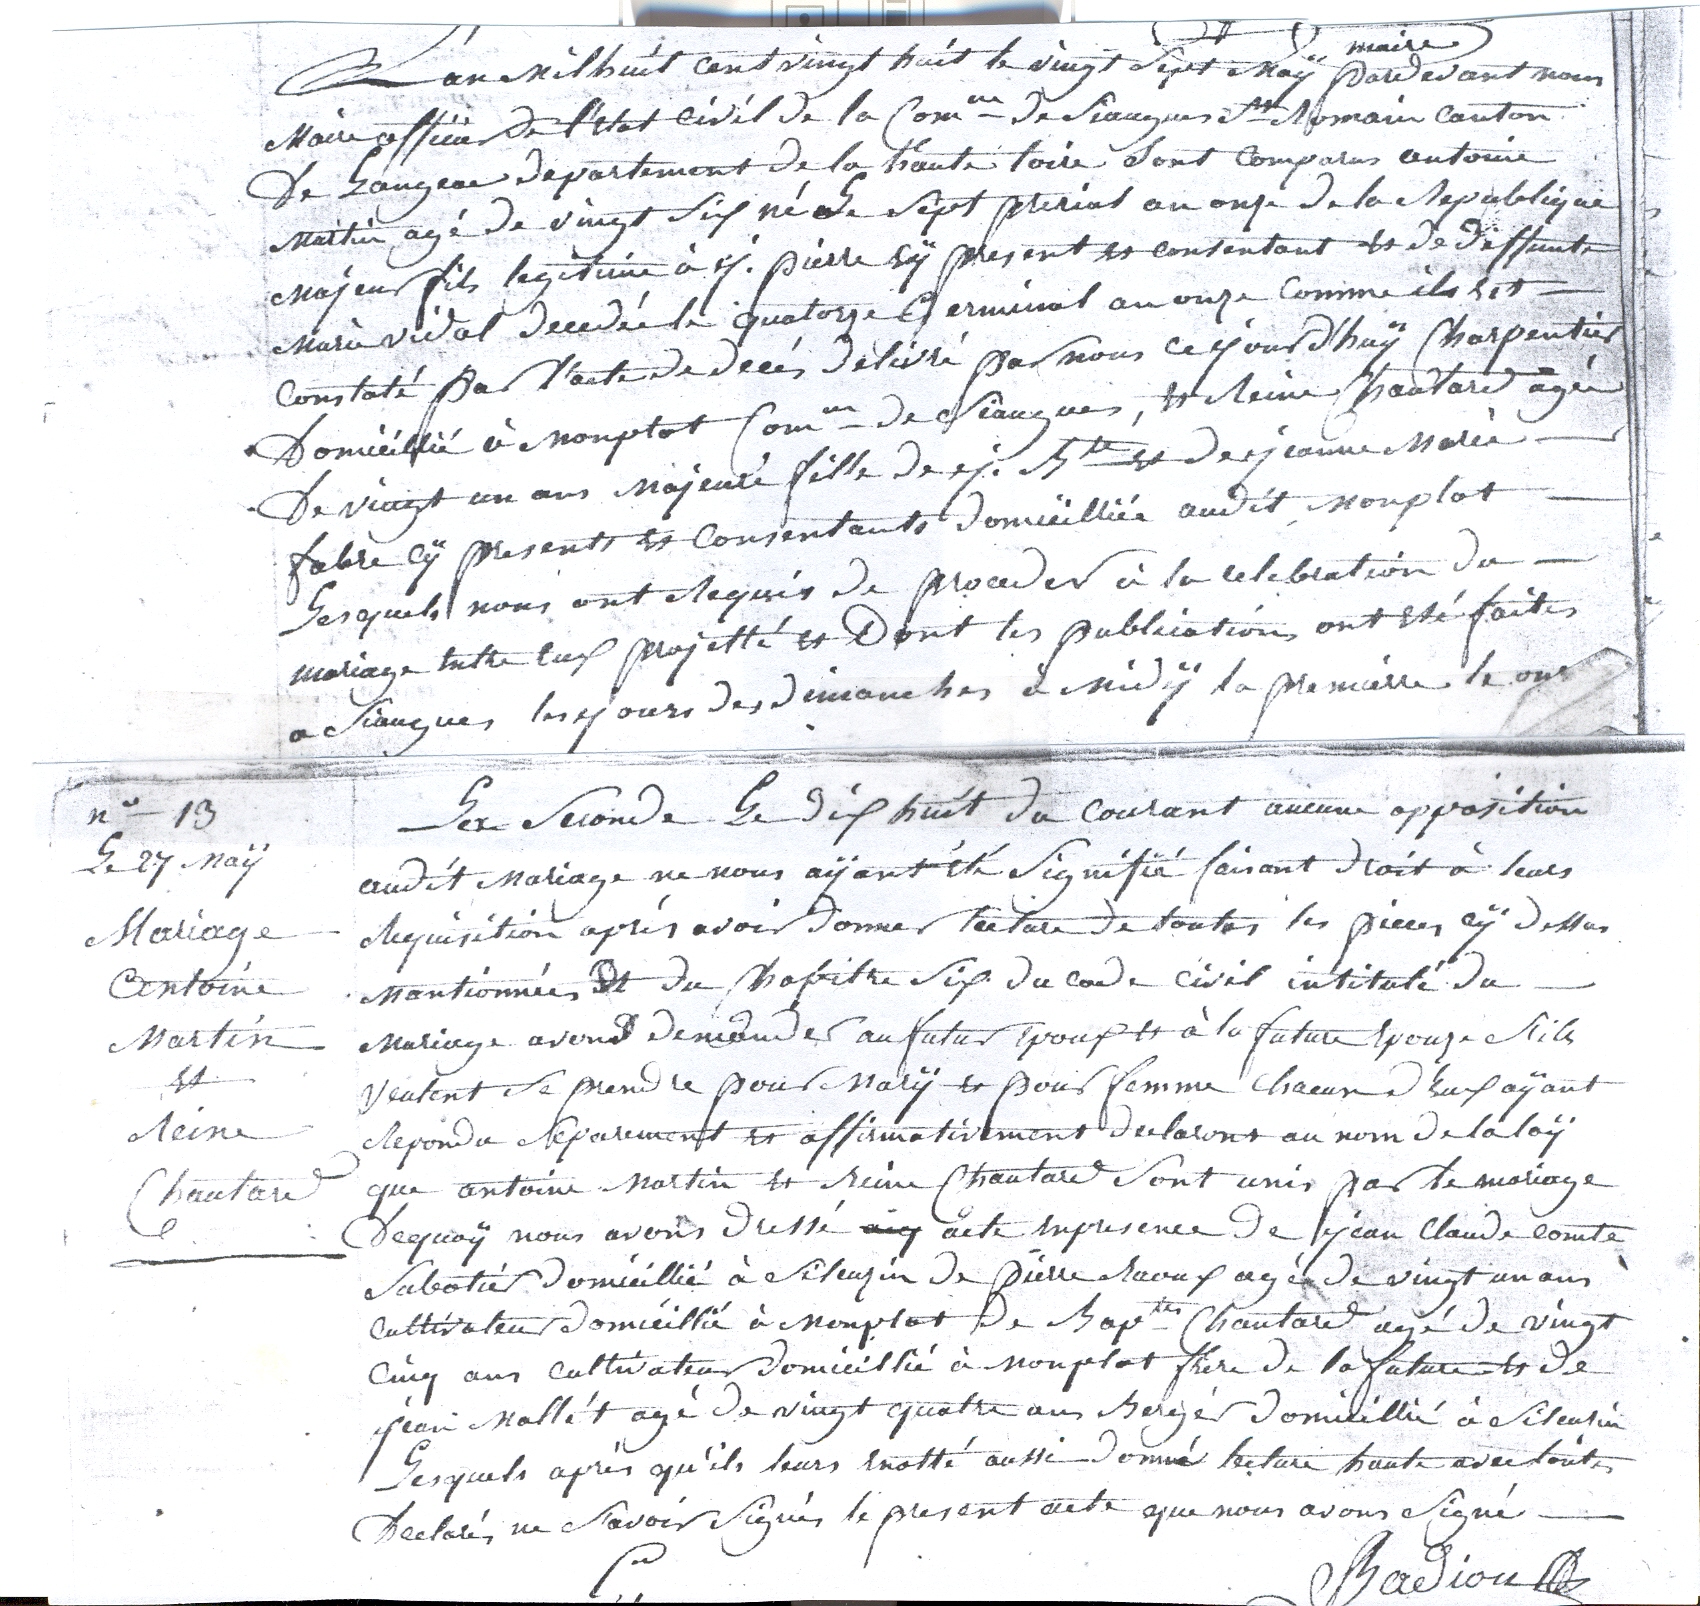 maire
L'an mil huit cent vingt huit le vingt sept may pardevant nous
Maire officier de l'état civil de la Com.ne de Siaugues St Romain canton
De Langeac departement de la haute loire sont comparus antoine
Martin agé de vingt six né Le sept prerial an onze de la Republique
Majeur fils legitime à j. pierre cy present et consentant et de deffunte
Marie vidal decedée le quatorze Germinal an onze comme ils est
Constaté par l'acte de decés delivré par nous cejourd'huy Charpentier
Domicillié à Monplot Com.ne de Siaugues, et Reine Chautard agée
De vingt un ans Majeure fille de j. Bte et de jeanne Marie
fabre cy presents et Consentants domicilliée audit Monplot
Lesquels nous ont Requis de proceder à la celebration du
mariage entre eux projetté et Dont les publications ont été faites
a Siaugues les jours des dimanches à midy la premiere le onze
n° 13
Le 27 May
Mariage
Antoine
Martin
et
Reine
Chautard
La Seconde Le dix huit du courant aucune opposition
audit Mariage ne nous ayant été signifié faisant droit à leurs
Requisition aprés avoir donner lecture de toutes les pieces cy dessus
Mantionnées et du Chapitre Six du code civil intitulé du
Mariage avons demander au futur epoux et à la future epouze s'ils
veulent se prendre pour Mary et pour femme chacun d'eux ayant
Repondu Separement et affirmativement declarons au nom de la loy
que antoine Martin et Reine Chautard sont unis par le mariage
Dequoy nous avons dressé acte en presence de jean Claude comte
Sabotier domicillié à Sileuzin de pierre Raoux agé de vingt un ans
Cultivateur domicillié à Monplot de Bap.te Chautard agé de vingt
Cinq ans cultivateur domicillié à Monplot frere de la future et de
jean Mallét agé de vingt quatre ans Berger domicillié à Sileuzin
Lesquels aprés qu'ils leurs aussi donné lecture haute
Declarés ne Savoir Signés le present acte que nous avons Signé
Badiou